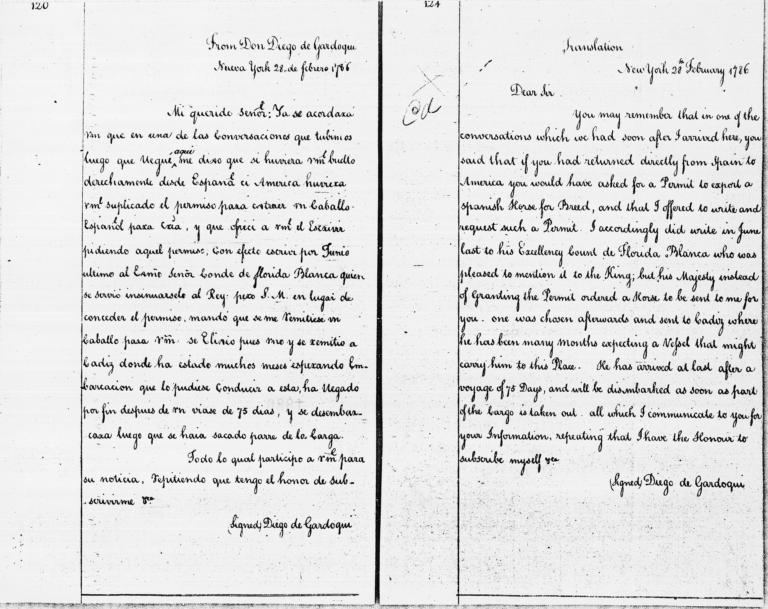 120
From Don Diego de Gardoqui
Nueva York 28. de febrero 1786
Mi queride Señor: Ya se acordara
Vm que en una de las Conversaciones que tubimos
luego que llegué aqui me dixo que si huviera Vm buelto
derechamente desde España a America huviera
Vm suplicado el permiso para extraer un Caballo
Español para Cria, y que ofreci a Vm el Escrivir
pidiendo aquel permiso, Con efecto escrivi por Junio
ultimo al Exmo Señor Conde de florida Blanca quien
se servió insinuarselo al Rey: pero S. M. en lugar de
conceder el permiso, mandó que se me remitiese un
Caballo para Vm. se Eligio pues uno y se remitio a
Cadiz donde ha estado muchos meses esperando Em-
barcacion que lo pudiese Conducir a esta, ha llegado
por fin despues de un viase de 75 dias, y se desembar-
cara luego que se haia sacado parte de la Carga.
Todo lo qual participo a Vm para
su noticia, repitiendo que tengo el honor de sub-
scrivirme &ca
(Signed) Diego de Gardoqui
124
Translation
New York 28th February 1786
Dear Sir
You may remember that in one of the
conversations which we had soon after I arrived here, you
said that if you had returned directly from Spain to
America you would have asked for a Permit to export a
Spanish Horse for Breed, and that I offered to write and
request such a Permit. I accordingly did write in June
last to his Excellency Count de Florida Blanca who was
pleased to mention it to the King; but his Majesty instead
of Granting the Permit ordered a Horse to be sent to me for
you. one was chosen afterwards and sent to Cadiz where
he has been many months expecting a Vessel that might
carry him to this Place. He has arrived at last after a
voyage of 75 Days, and will be disimbarked as soon as part
of the Cargo is taken out. all which I communicate to you for
your Information, repeating that I have the Honour to
subscribe myself &ca
(Signed) Diego de Gardoqui